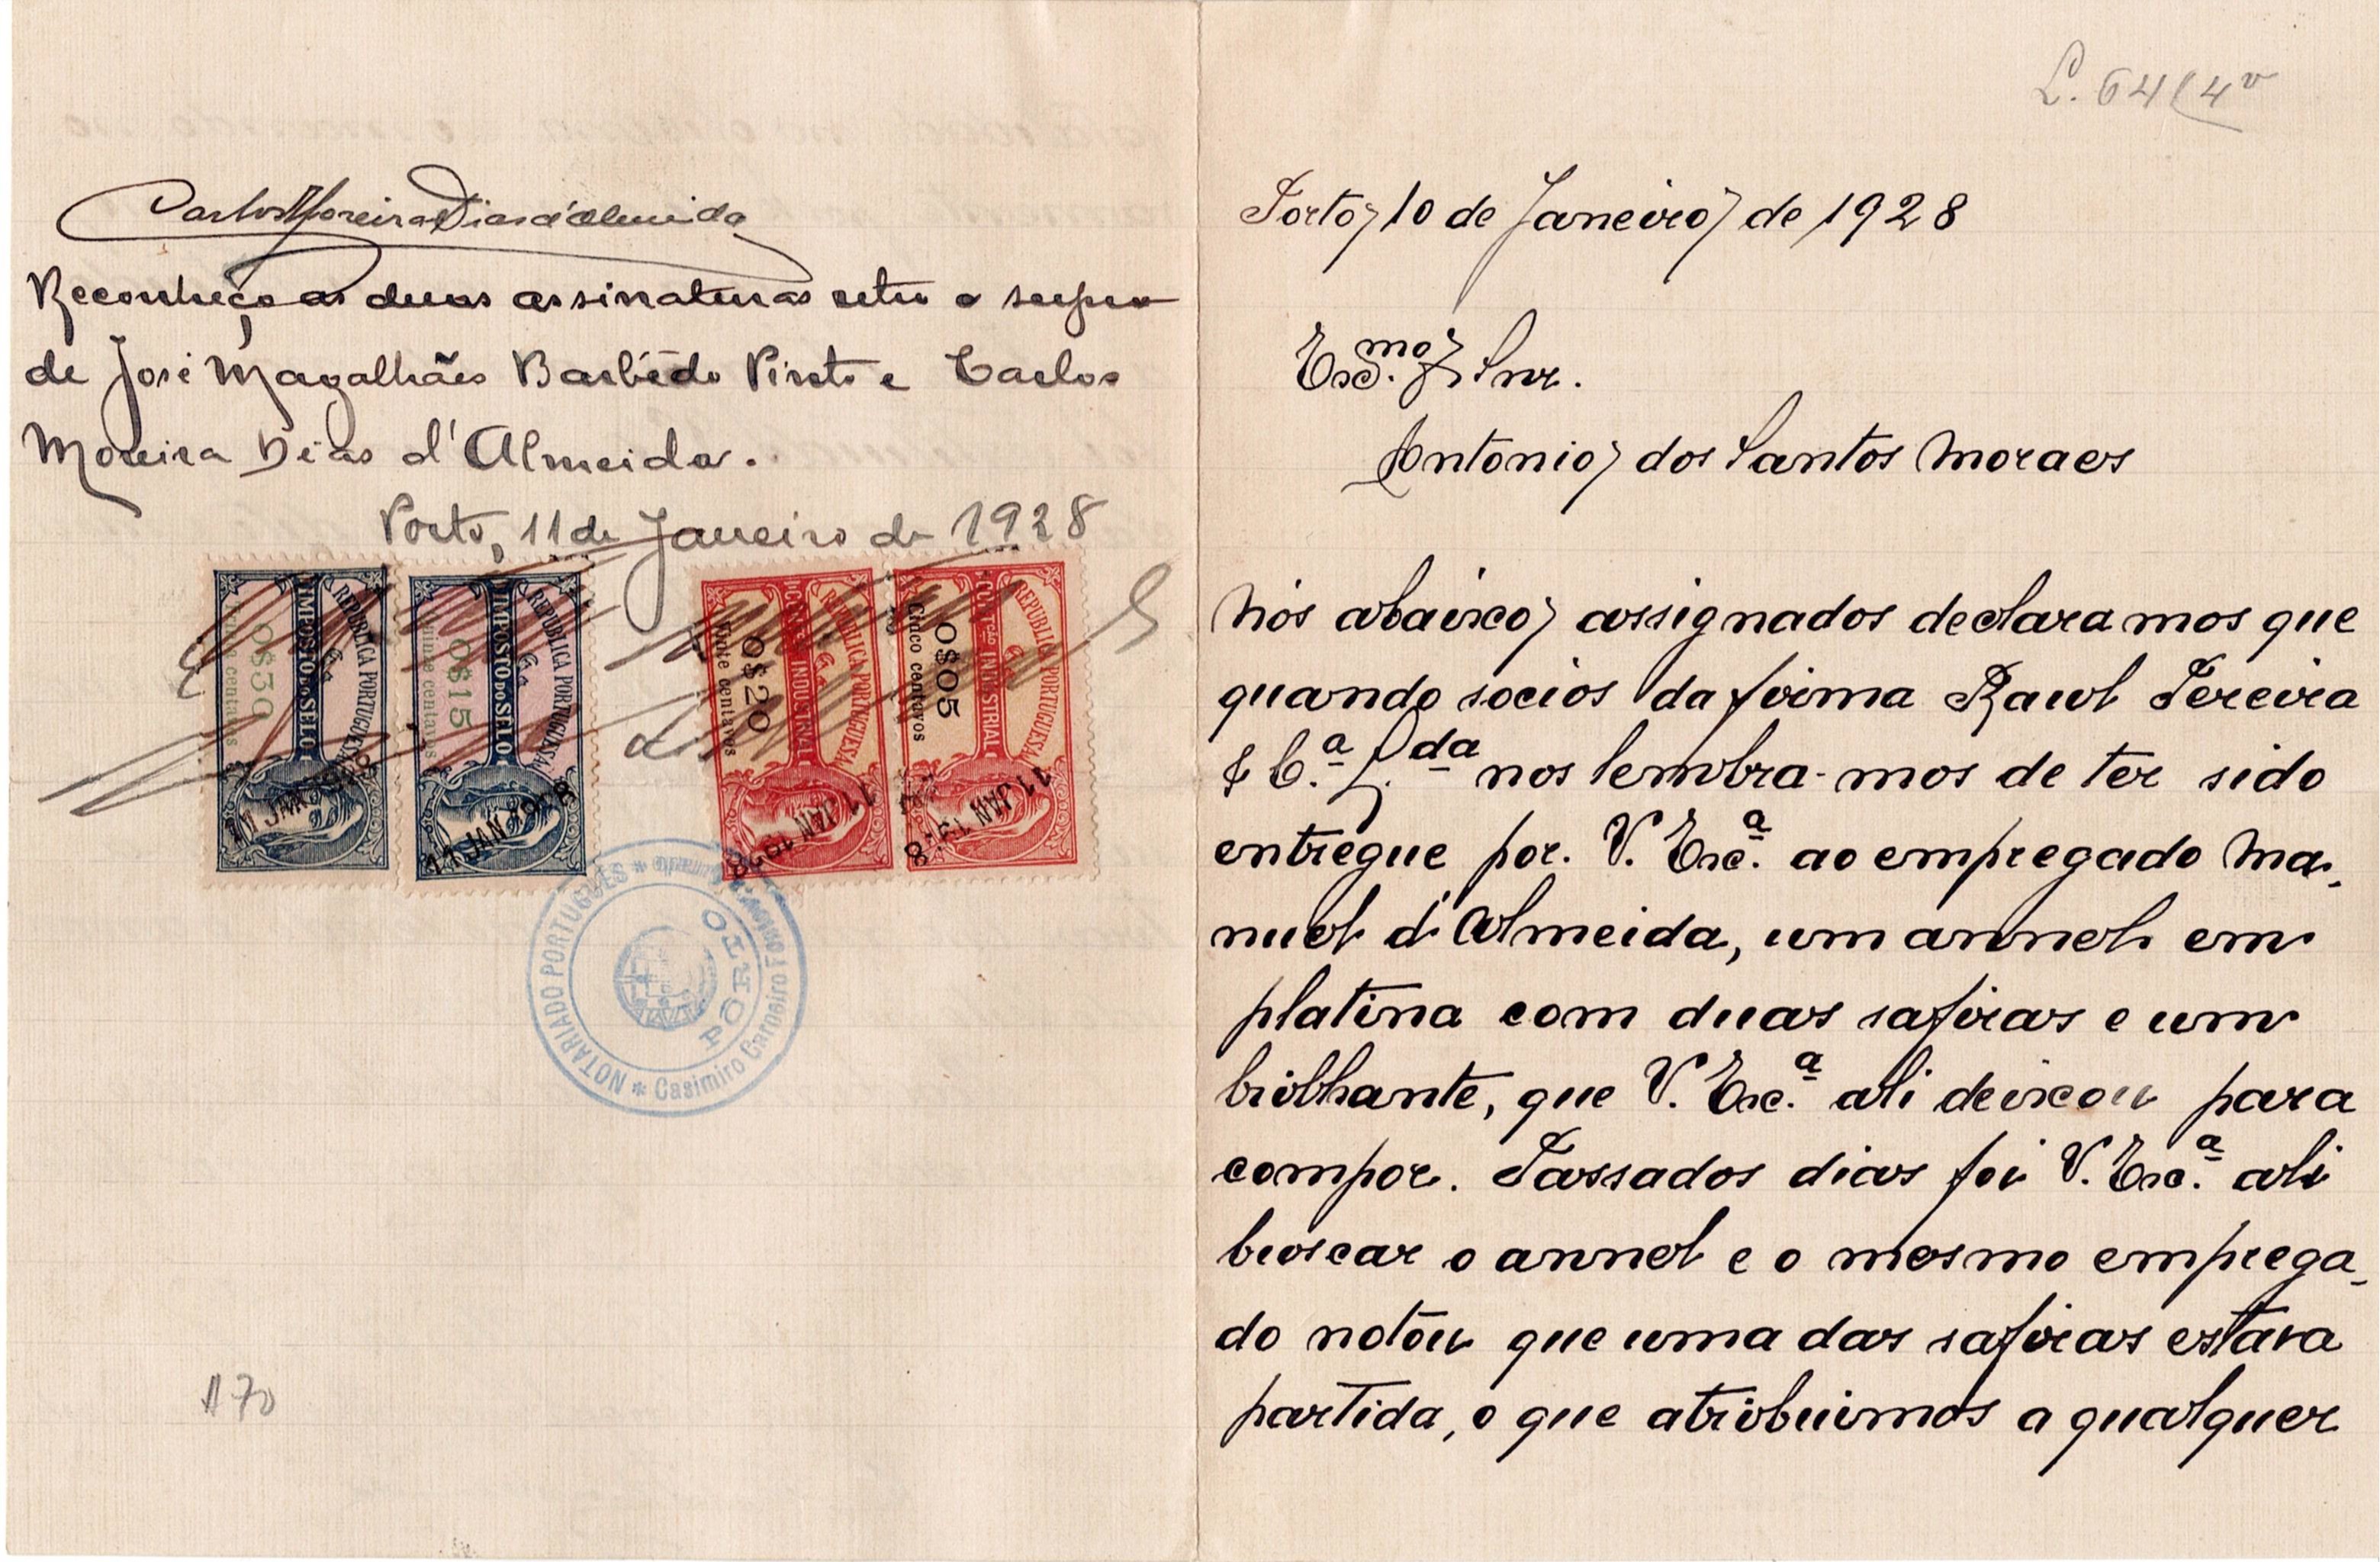 Carlos Moreira Dias d'Almeida
Reconheço as duas assinaturas retro e supra
de José Magalhães Barbêdo Pinto e Carlos
Moreira Dias d'Almeida.
Porto, 11 de Janeiro de 1928
REPUBLICA PORTUGUESA
IMPOSTO DO SELO
0$30
centavos
11 JAN 1928
REPUBLICA PORTUGUESA
IMPOSTO DO SELO
0$15
Quinze centavos
11 JAN 1928
REPUBLICA PORTUGUESA
INDUSTRIAL
0$20
Vinte centavos
11 JAN 1928
REPUBLICA PORTUGUESA
INDUSTRIAL
0$05
Cinco centavos
11 JAN 1928
NOTARIADO PORTUGUÊS * Casimiro Carneiro
PÔRTO
170
L. 64 (4v
Porto, 10 de Janeiro de 1928
Exc.mo Snr.
Antonio dos Santos Moraes
Nós abaixo assignados declaramos que
quando socios da firma Raul Pereira
& C.a L.da nos lembra-mos de ter sido
entregue por. V. Exc.a ao empregado Ma-
nuel d'Almeida, um annel em
platina com duas safiras e um
brilhante, que V. Exc.a ali deixou para
compor. Passados dias foi V. Exc.a ali
buscar o annel e o mesmo emprega-
do notou que uma das safiras estava
partida, o que atribuimos a qualquer